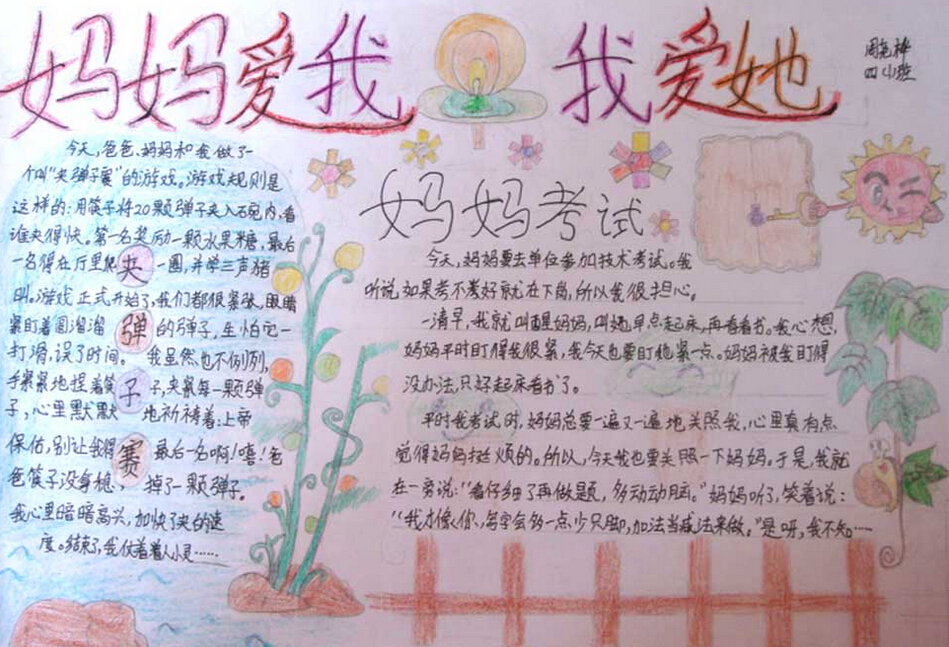 妈妈爱我 我爱她
四(1)班
今天,爸爸、妈妈和我做了一
个叫“夹弹子赛”的游戏。游戏规则是
这样的:用筷子将20颗弹子夹入碗内,看
谁夹得快。第一名奖励一颗水果糖,最后
一名得在厅里爬一圈,并学三声猪
叫。游戏正式开始了,我们都很紧张,眼睛
紧盯着圆溜溜的弹子,生怕它一
打滑,误了时间。我虽然也不例外,
手紧紧地捏着筷子,夹紧每一颗弹
子,心里默默地祈祷着:上帝
保佑,别让我得最后一名啊!嘻!爸
爸筷子没拿稳,掉了一颗弹子。
我心里暗暗高兴,加快了夹的速
度。结束了,我仗着着人小灵……
夹
弹
子
赛
妈妈考试
今天,妈妈要去单位参加技术考试。我
听说如果考不好就在下岗,所以我很担心。
一清早,我就叫醒妈妈,叫她早点起来,再看看书。我心想,
妈妈平时盯得我很紧,我今天也要盯他紧一点。妈妈被我盯得
没办法,只好起来看书了。
平时我考试时,妈妈总要一遍又一遍地关照我,心里真有点
觉得妈妈挺烦的。所以,今天我也要关照一下妈妈。于是,我就
在一旁说:“看仔细了再做题,多动动脑。”妈妈听了,笑着说:
“我才像你,写字会多一点少只脚,加法当减法来做。”是呀,我不知……